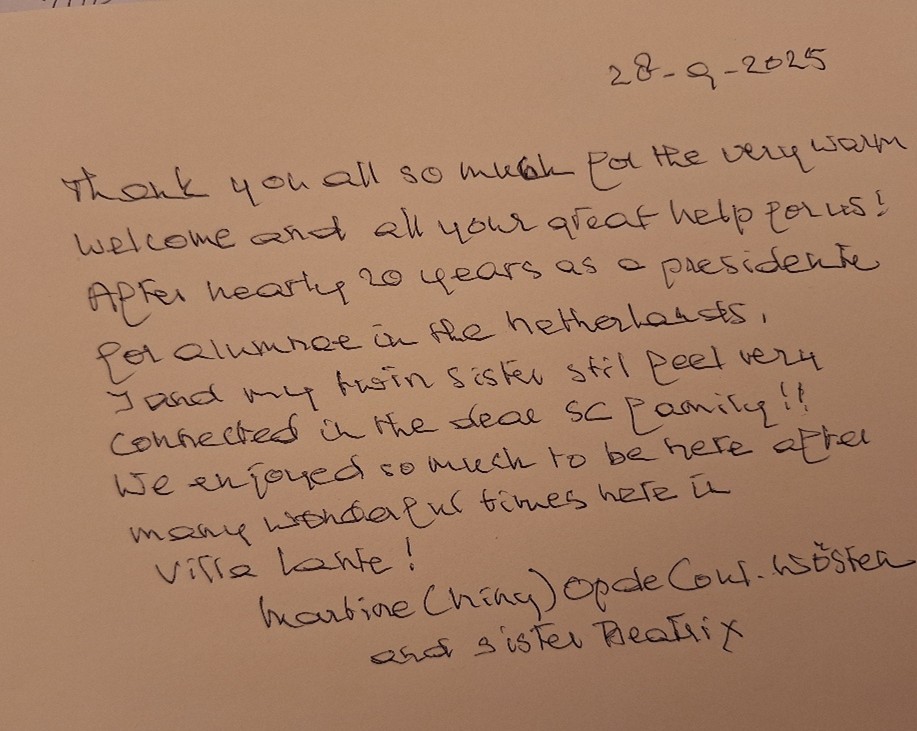 28-9-2025
Thank you all so much for the very warm
welcome and all your great help for us!
After nearly 20 years as a presidente
for alumnae in the Netherlands,
I and my twin sister stil feel very
connected in the dear SC family!!
We enjoyed so much to be here after
many wonderful times here in
Villa Lante!
Martine (Niny) Op de Coul-Wösten
and sister Beatrix